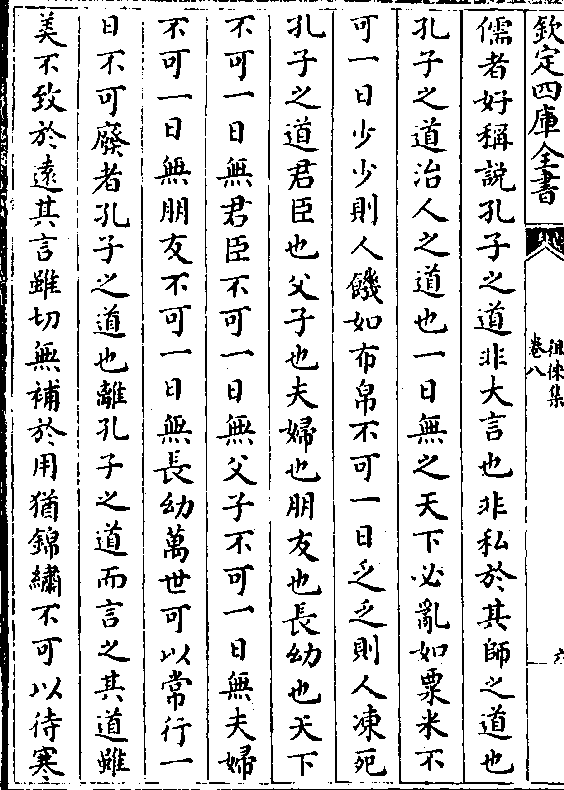 欽定四庫全書
徂徠集
卷八
六
儒者好稱說孔子之道非大言也非私於其師之道也
孔子之道治人之道也一日無之天下必亂如粟米不
可一日少少則人饑如布帛不可一日乏乏則人凍死
孔子之道君臣也父子也夫婦也朋友也長幼也天下
不可一日無君臣不可一日無父子不可一日無夫婦
不可一日無朋友不可一日無長幼萬世可以常行一
日不可廢者孔子之道也離孔子之道而言之其道雖
美不致於遠其言雖切無補於用猶錦繡不可以待寒